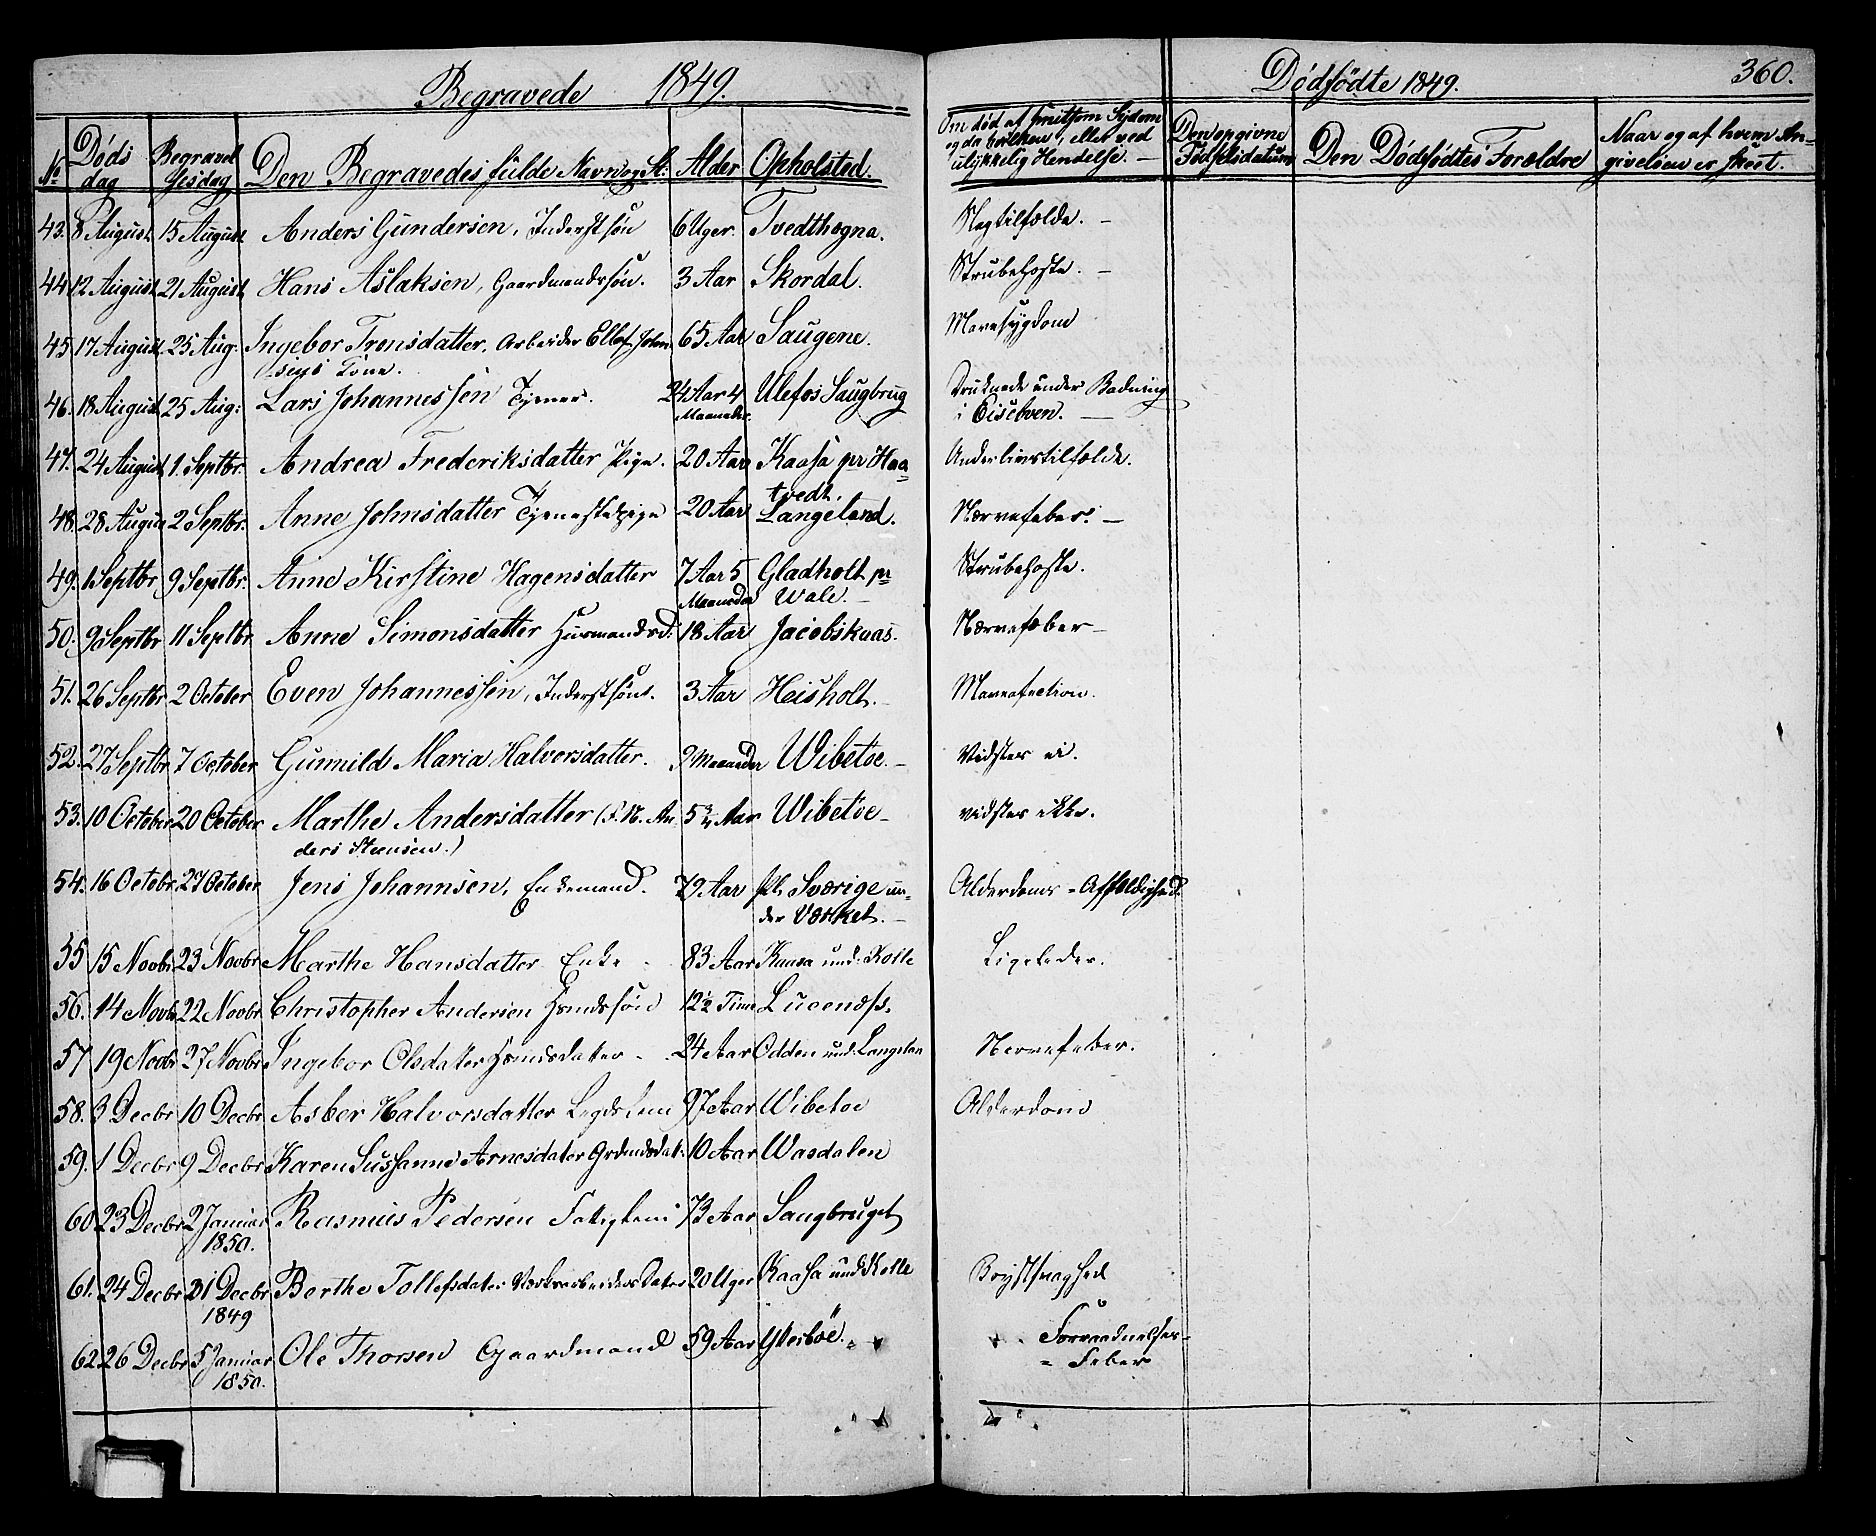 Begravede 1849.
Dödsödte 1849. 360.
No Døds dag Begravelsesdag Den Begravedes fulde Navn og St: Alder Opholsted. Om död af smitsom Sÿdom og da hvilken, eller ved ulÿkkelig Hendelse. Den opgivne Födselsdatum Den Dödfödtes Forældre Naar og af hvem Angivelsen er skeet.
43. 8 August 15 August Anders Gundersen, Inderstsön 6 Uger. Tvedthogna. Slagtilfælde.
44. 12 August 21 August Hans Aslaksen, Gaardmandssön. 3 Aar Skordal. Strubehoste.
45. 17 August 25 Aug: Ingebor Tronsdatter, Arbeider Ellef John- 65 Aar Saugene. Mavesygdom
sens Kone.
46. 18 August 25 Aug: Lars Johannessen Tjener. 24 Aar 4 Maaneder Ulefos Saugbrug Druknede under Badning
i
47. 24 August 1. Septbr. Andrea Frederiksdatter Pige. 20 Aar Kaasa pr Haa- Underlivstilfælde.
tvedt.
48. 28 August 2 Septbr. Anne Johnsdatter Tjenestepige 20 Aar Langeland. Nervefeber.
49. 1 Septbr 9 Septbr. Anne Kirstine Hagensdatter 7 Aar 5 Maaneder Gladholt pr Strubehoste.
Wale.
50. 9 Septbr 11 Septbr Anne Simonsdatter Huusmandsd. 18 Aar Jacobskaas. Nervefeber
51. 26 Septbr 2 October Even Johannessen, Inderstsöns. 3 Aar Heisholt. Mavefection.
52. 27 Septbr 7 October Gunnild Maria Halvorsdatter. 9 Maaneder Wibetoe. Vidstes ei.
53. 10 October 20 October Marthe Andersdatter (F. N. An- 5 3/4 Aar Wibetoe vidstes ikke.
ders Steensen.)
54. 16 Octobr. 27 October Jens Johannsen, Enkemand. 79 Aar pl. Sværige un- Alderdoms-Affældighed.
der Værket.
55 15 Novbr 23 Novbr Marthe Hansdatter Enke 83 Aar Kaasa und. Holle Ligeledes.
56. 14 Novbr 22 Novbr Christopher Andersen Hsmdssön 12 1/2 Time Lucenæss.
57 19 Novbr 27 Novbr Ingebor Olsdater Hsmdsdater 24 Aar Odden und. Langelan Nervefeber.
58. 3 Decbr 10 Decbr Asber Halvorsdatter Legdslem 97 Aar Wibetoe Alderdom
59. 1 Decbr 9 Decbr Karen Sussanne Arnesdater Grdmdsdat. 10 Aar Wasdalen
60 23 Decbr 2 Januar Rasmus Pedersen Fatiglem 73 Aar Saugbruget
1850.
61. 24 Decbr 31 Decbr Berthe Tollefsdater Værksarbeiders Dater 20 Uger Kaasa und Holle Brystsvaghed
1849
62 26 Decbr 5 Januar Ole Thorsen Gaardmand 59 Aar Ytterböe. Forraadnelses-
1850. Feber